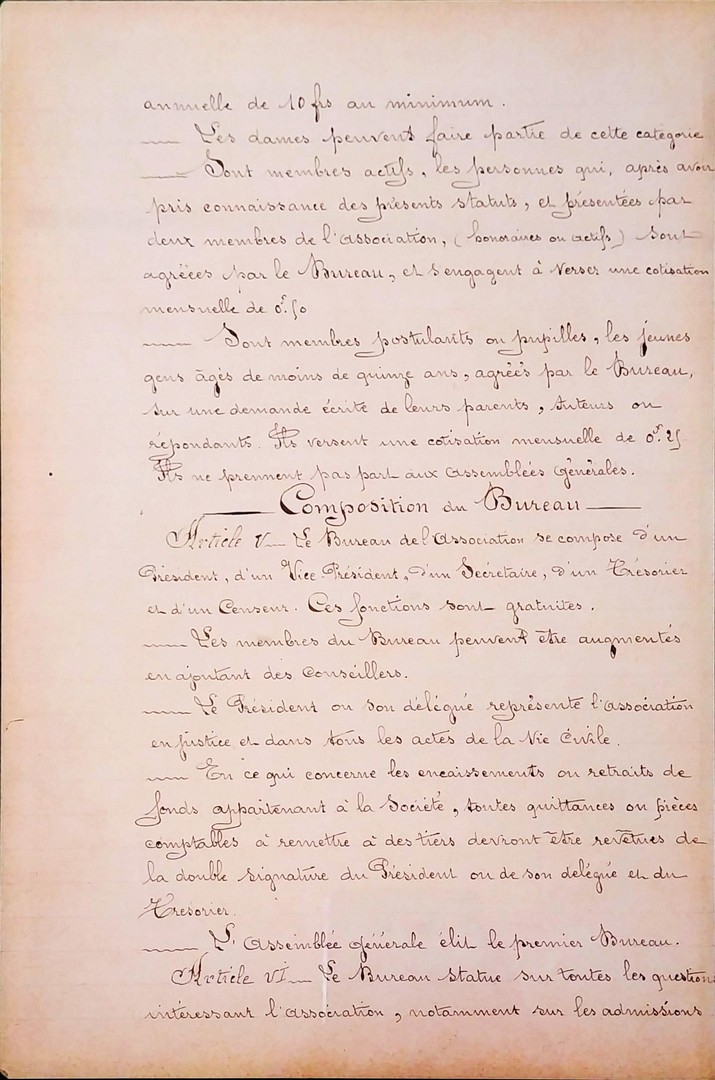 annuelle de 10 frs au minimum.
Les dames peuvent faire partie de cette catégorie
Sont membres actifs, les personnes qui, après avoir
pris connaissance des présents statuts, et présentées par
deux membres de l'association, (honoraires ou actifs) sont
agréées par le Bureau, et s'engagent à verser une cotisation
mensuelle de 0f.50
Sont membres postulants ou pupilles, les jeunes
gens âgés de moins de quinze ans, agréés par le Bureau,
sur une demande écrite de leurs parents, tuteurs ou
répondants. Ils versent une cotisation mensuelle de 0f.25
Ils ne prennent pas part aux assemblées Générales.
Composition du Bureau
Article V Le Bureau de l'Association se compose d'un
Président, d'un Vice-Président, d'un Secrétaire, d'un Trésorier
et d'un Censeur. Ces fonctions sont gratuites.
Les membres du Bureau peuvent être augmentés
en ajoutant des Conseillers.
Le Président ou son délégué représente l'association
en justice et dans tous les actes de la Vie Civile.
En ce qui concerne les encaissements ou retraits de
fonds appartenant à la Société, toutes quittances ou pièces
comptables à remettre à des tiers devront être revêtues de
la double signature du Président ou de son délégué et du
Trésorier.
L'Assemblée Générale élit le premier Bureau.
Article VI Le Bureau statue sur toutes les questions
intéressant l'association, notamment sur les admissions